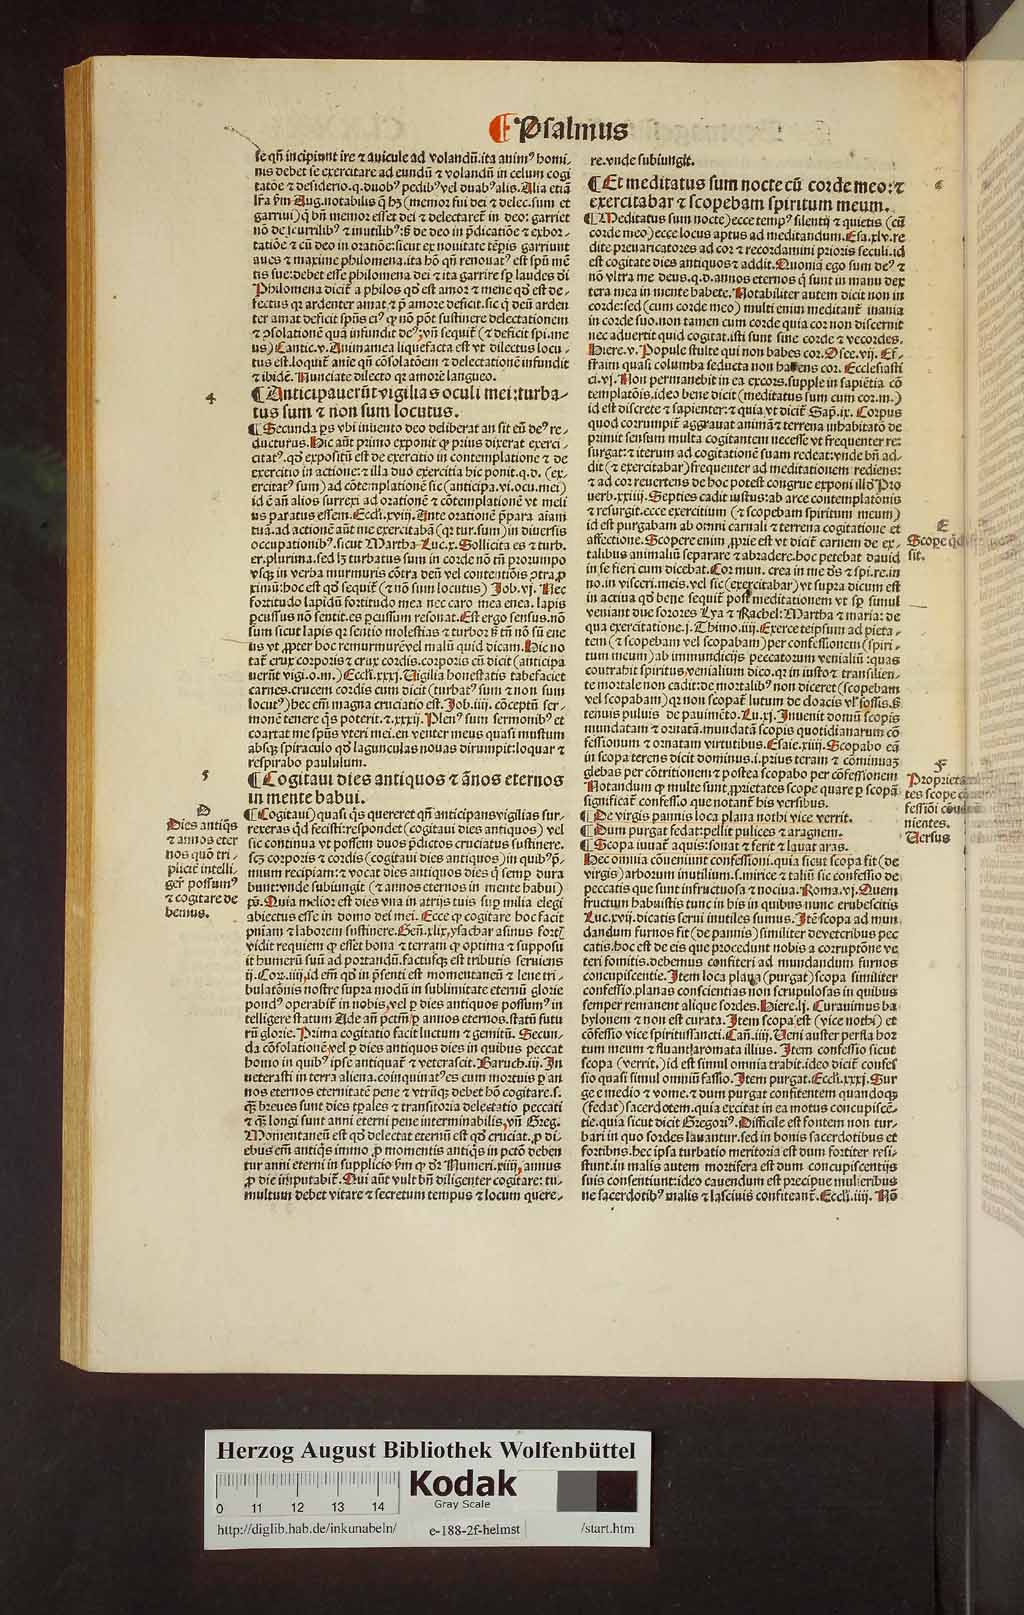 ¶ Psalmus
se qñ incipiunt ire ⁊ auicule ad volandũ.ita animꝰ homi-
nis debet se exercitare ad eundũ ⁊ volandũ in celum cogi
tatõe ⁊ desiderio.q.duobꝰ pedibꝰ vel duabꝰ alis.Alia etiã
garriui) q̃ bñ memor esset dei ⁊ delectaret̃ in deo: garriet
tatiõe ⁊ cũ deo in oratiõe:sicut ex nouitate tẽpis garriunt
aues ⁊ maxime philomena.ita hõ qñ renouatꝰ est spũ mẽ
tis sue:debet esse philomena dei ⁊ ita garrire sp laudes dĩ
Philomena dicit̃ a philos qđ est amor ⁊ mene qđ est de-
fectus qꝛ ardenter amat ⁊ p̃ amore deficit.sic q̃ deũ arden
ter amat deficit spũs eiꝰ qꝛ nõ põt sustinere delectationem
⁊ ꝯsolationẽ quã infundit deꝰ;vñ sequit̃ (⁊ deficit spi.me
us) Cantic.v.Animamea liquefacta est vt dilectus locu-
tus est.loquit̃ anie qñ cõsolatõem ⁊ delectationẽ infundit
⁊ ibidẽ.Nunciate dilecto qꝛ amore langueo.
4
¶ Anticipauerũt vigilias oculi mei:turba-
tus sum ⁊ non sum locutus.
¶ Secunda ps vbi inuento deo deliberat an sit eũ deꝰ re-
ducturus.Hic aũt primo exponit qꝛ prius dixerat exerci-
citatꝰ.qđ expositũ est de exercitio in contemplatione ⁊ de
exercitio in actione:⁊ illa duo exercitia hic ponit.q.d.(ex-
ercitatꝰ sum) ad cõtemplationẽ sic (anticipa.vi.ocu.mei)
id ẽ añ alios surrexi ad orationẽ ⁊ cõtemplationẽ vt meli
us paratus essem.Eccli.xviij.Ante orationẽ p̃para aiam
tuã.ad actionẽ aũt me exercitabã (qꝛ tur.sum) in diuersis
occupationibꝰ.sicut Martha.Luc.x.Sollicita es ⁊ turb.
er.plurima.sed lꝫ turbatus sum in corde nõ tñ prorumpo
vsqꝫ in verba murmuris cõtra deũ vel contentiõis ꝯtra ꝓ
ximũ:hoc est qđ sequit̃ (⁊ nõ sum locutus) Job.vj.Nec
fortitudo lapidũ fortitudo mea nec caro mea enea.lapis
ꝑcussus nõ sentit.es ꝑcussum resonat.Est ergo sensus.nõ
sum sicut lapis qꝛ sentio molestias ⁊ turbor s̃ tñ nõ sũ ene
us vt ꝓpter hoc remurmurẽ vel malũ quid dicam.Hic no
tat̃ crux corporis ⁊ crux cordis.corporis cũ dicit (anticipa
uerũt vigi.o.m.) Eccli.xxxj.Vigilia honestatis tabefaciet
carnes.crucem cordis cum dicit (turbatꝰ sum ⁊ non sum
locutꝰ) hec eñ magna cruciatio est.Job.iiij.cõceptũ ser-
monẽ tenere q̃s poterit.⁊.xxxij.Plenꝰ sum sermonibꝰ et
coartat me spũs vteri mei.en venter meus quasi mustum
absqꝫ spiraculo qđ lagunculas nouas dirumpit:loquar ⁊
respirabo paululum.
5
¶ Cogitaui dies antiquos ⁊ ãnos eternos
in mente habui.
D
Dies antiq̃s
⁊ annos eter
nos quõ tri-
pliciẽ intelli-
ger̃ possumꝰ
⁊ cogitare de
bemus.
¶ Cogitaui) quasi q̃s quereret qñ anticipans vigilias sur-
rexeras qđ fecisti:respondet (cogitaui dies antiquos) vel
sic continua vt possem duos p̃dictos cruciatus sustinere.
scꝫ corporis ⁊ cordis (cogitaui dies antiquos) in quibꝰ p̃-
mium recipiam:⁊ vocat dies antiquos dies q̃ semp̃ dura
bunt:vnde subiungit (⁊ annos eternos in mente habui)
Quia melior est dies vna in atrijs tuis sup milia elegi
abiectus esse in domo dei mei.Ecce qꝛ cogitare hoc facit
pñiam ⁊ laborem sustinere.Geñ.xlix.ysachar asinus fort̃
vidit requiem qꝛ esset bona ⁊ terram qꝛ optima ⁊ supposu
it humerũ suũ ad portandũ.factusqꝫ est tributis seruiens
ij.Cor.iiij.id em̃ qđ in p̃senti est momentaneũ ⁊ leue tri-
bulatõnis nostre supra modũ in sublimitate eternũ glorie
pondꝰ operabit̃ in nobis,vel ꝑ dies antiquos possumꝰ in
telligere statum Ade añ pctm̃/ ꝑ annos eternos.statũ futu
rũ glorie.Prima cogitatio facit luctum ⁊ gemitũ.Secun-
da cõsolationẽ.vel ꝑ dies antiquos dies in quibus peccat
homo in quibꝰ ipse antiquat̃ ⁊ veterascit.Baruch.iij.In
ueterasti in terra aliena.coinquinatꝰ es cum mortuis ꝑ an
nos eternos eternitatẽ pene ⁊ vtrũqꝫ debet hõ cogitare.s.
q̃ breues sunt dies tpales ⁊ transitoria delectatio peccati
⁊ q̃ longi sunt anni eterni pene interminabilis,vñ Greg.
Momentaneũ est qđ delectat eternũ est qđ cruciat.ꝓ di-
ebus em̃ antiq̃s immo ꝓ momentis antiq̃s in pctõ deben
tur anni eterni in supplicio
ꝓ die imputabit̃.Qui aũt vult bñ diligenter cogitare:tu-
multum debet vitare ⁊ secretum tempus ⁊ locum quere-
re.vnde subiungit.
6
¶ Et meditatus sum nocte cũ corde meo:⁊
exercitabar ⁊ scopebam spiritum meum.
¶ Meditatus sum nocte) ecce tempꝰ silentij ⁊ quietis (cũ
corde meo) ecce locus aptus ad meditandum.Esa.xlv.re
dite preuaricatores ad cor ⁊ recordamini prioris seculi.id
est cogitate dies antiquos ⁊ addit.Quoniã ego sum deꝰ ⁊
nõ vltra me deus.q.d.annos eternos q̃ sunt in manu dex
tera mea in mente habete.Notabiliter autem dicit non in
corde:sed (cum corde meo) multi enim meditant̃ inania
in corde suo.non tamen cum corde quia cor non discernit
nec aduertit quid cogitat.isti sunt sine corde ⁊ vecordes.
Hiere.v.Popule stulte qui non habes cor.Osee.vij.Ef-
fraim quasi columba seducta non habens cor.Ecclesiasti
ci.vj.Non permanebit in ea excors.supple in sapiẽtia cõ
templatõis.ideo bene dicit (meditatus sum cum cor.m.)
id est discrete ⁊ sapienter:⁊ quia vt dicit̃ Sap.ix.Corpus
quod corrumpit̃ aggrauat animã ⁊ terrena inhabitatõ de
primit sensum multa cogitantem necesse vt frequenter re:
surgat:⁊ iterum ad cogitationẽ suam redeat:vnde bñ ad-
dit (⁊ exercitabar) frequenter ad meditationem rediens:
⁊ ad cor reuertens de hoc potest congrue exponi illđ Pro
uerb.xxiiij.Septies cadit iustus:ab arce contemplatõnis
⁊ resurgit.ecce exercitium (⁊ scopebam spiritum meum)
id est purgabam ab omni carnali ⁊ terrena cogitatione et
affectione.Scopere enim ꝓprie est vt dicit̃ carnem de ex-
talibus animaliũ separare ⁊ abradere.hoc petebat dauid
in se fieri cum dicebat.Cor mun.crea in me đs ⁊ spi.re.in
no.in visceri.meis.vel sic (exercitabar) vt supra dicum est
in actiua qđ bene sequit̃ post meditationem vt sp simul
veniant due sorores Lya ⁊ Rachel:Martha ⁊ maria: de
qua exercitatione.j.Thimo.iiij.Exerce teipsum ad pieta-
tem (⁊ scopebam vel scopabam) per confessionem (spiri-
tum meum) ab immundicijs peccatorum venialiũ:quas
contrahit spiritus,venialium dico.qꝛ in iusto ⁊ transilien-
te mortale non cadit:de mortalibꝰ non diceret (scopebam
vel scopabam) qꝛ non scopat̃ lutum de cloacis vl̃ fossis.s̃
tenuis puluis de pauimẽto.Lu.xj.Inuenit domũ scopis
mundatam ⁊ ornatã.mundatã scopis quotidianarum cõ
fessionum ⁊ ornatam virtutibus.Esaie.xiiij.Scopabo eã
in scopa terens dicit dominus.i.prius teram ⁊ cõminuaꝫ
glebas per cõtritionem ⁊ postea scopabo per cõfessionem
Notandum qꝛ multe sunt ꝓprietates scope quare ꝑ scopã
significat̃ confessio que notant̃ his versibus.
¶ De virgis pannis loca plana nothi vice verrit.
¶ Dum purgat fedat:pellit pulices ⁊ aragnem.
¶ Scopa iuuat̃ aquis:sonat ⁊ ferit ⁊ lauat aras.
Hec omnia cõueniunt confessioni.quia sicut scopa fit (de
virgis) arborum inutilium.s.mirice ⁊ taliũ sic confessio de
peccatis que sunt infructuosa ⁊ nociua.Roma.vj.Quem
fructum habuistis tunc in his in quibus nunc erubescitis
Luc.xvij.dicatis serui inutiles sumus.Itẽ scopa ad mun
dandum furnos fit (de pannis) similiter de vetcribus pec
catis.hoc est de eis que procedunt nobis a corruptõne ve
teri fomitis.debemus confiteri ad mundandum furnos
concupiscentie.Item loca plana (purgat) scopa similiter
confessio.planas conscientias non scrupulosas in quibus
semper remanent alique sordes.Hiere.lj.Curauimus ba
bylonem ⁊ non est curata.Item scopa est (vice nothi) et
cõfessio vice spiritussancti.Cañ.iiij.Veni auster perfla hor
tum meum ⁊ fluant aromata illius.Item confessio sicut
scopa (verrit,) id est simul omnia trahit.ideo dicit̃ confes
sio quasi simul omniũ fassio.Item purgat.Eccli.xxxj.Sur
ge e medio ⁊ vome.⁊ dum purgat confitentem quandoqꝫ
(fedat) sacerdotem.quia excitat in ea motus concupiscẽ-
tie.quia sicut dicit Gregoriꝰ.Difficile est fontem non tur-
bari in quo sordes lauantur.sed in bonis sacerdotibus et
fortibus.hec ipsa turbatio meritoria est dum fortiter resi-
stunt.in malis autem mortifera est dum concupiscentijs
suis consentiunt:ideo cauendum est precipue mulieribus
ne sacerdotibꝰ malis ⁊ lasciuis confiteant̃.Eccli.iiij.Nõ
E
Scope q̃d
sit.
F
Proprieta
tes scope
fessiõi
nientes.
Versus
Herzog August Bibliothek Wolfenbüttel
Kodak
Gray Scale
0 11 12 13 14
http://diglib.hab.de/inkunabeln/ e-188-2f-helmst /start.htm